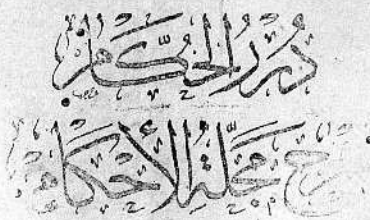 دُرَرُ الحُكَّامِ
شرح مجلّةِ الأحكام